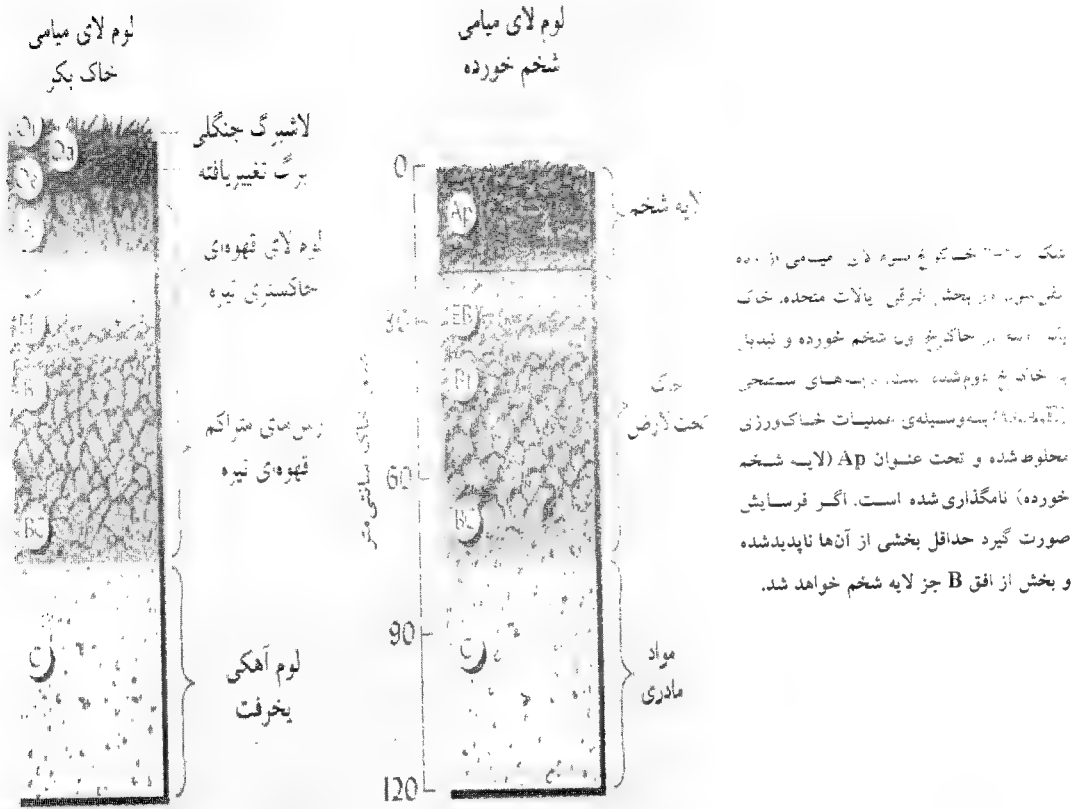 لوم لای میامی
خاک بکر
لاشبرگ جنگلی
برگ تغییریافته
لوم لای قهوه‌ای
خاکستری تیره
رس‌های متراکم
قهوه‌ای تیره
لوم آهکی
یخرفت
Oi
Oa
Oe
A
B
BC
C
لوم لای میامی
شخم خورده
0
30
60
90
120
عمق خاک سانتی‌متر
Ap
EB
Bt
BC
C
لایه شخم
خاک
تحت‌الارض
مواد
مادری
میامی از رده
در بخش شرقی ایالات متحده. خاک
شخم خورده و تبدیل
سطحی
به‌وسیله‌ی عملیات خاک‌ورزی
مخلوط شده و تحت عنوان Ap (لایه شخم
خورده) نامگذاری شده است. اگر فرسایش
صورت گیرد حداقل بخشی از آن‌ها ناپدیدشده
و بخش از افق B جز لایه شخم خواهد شد.